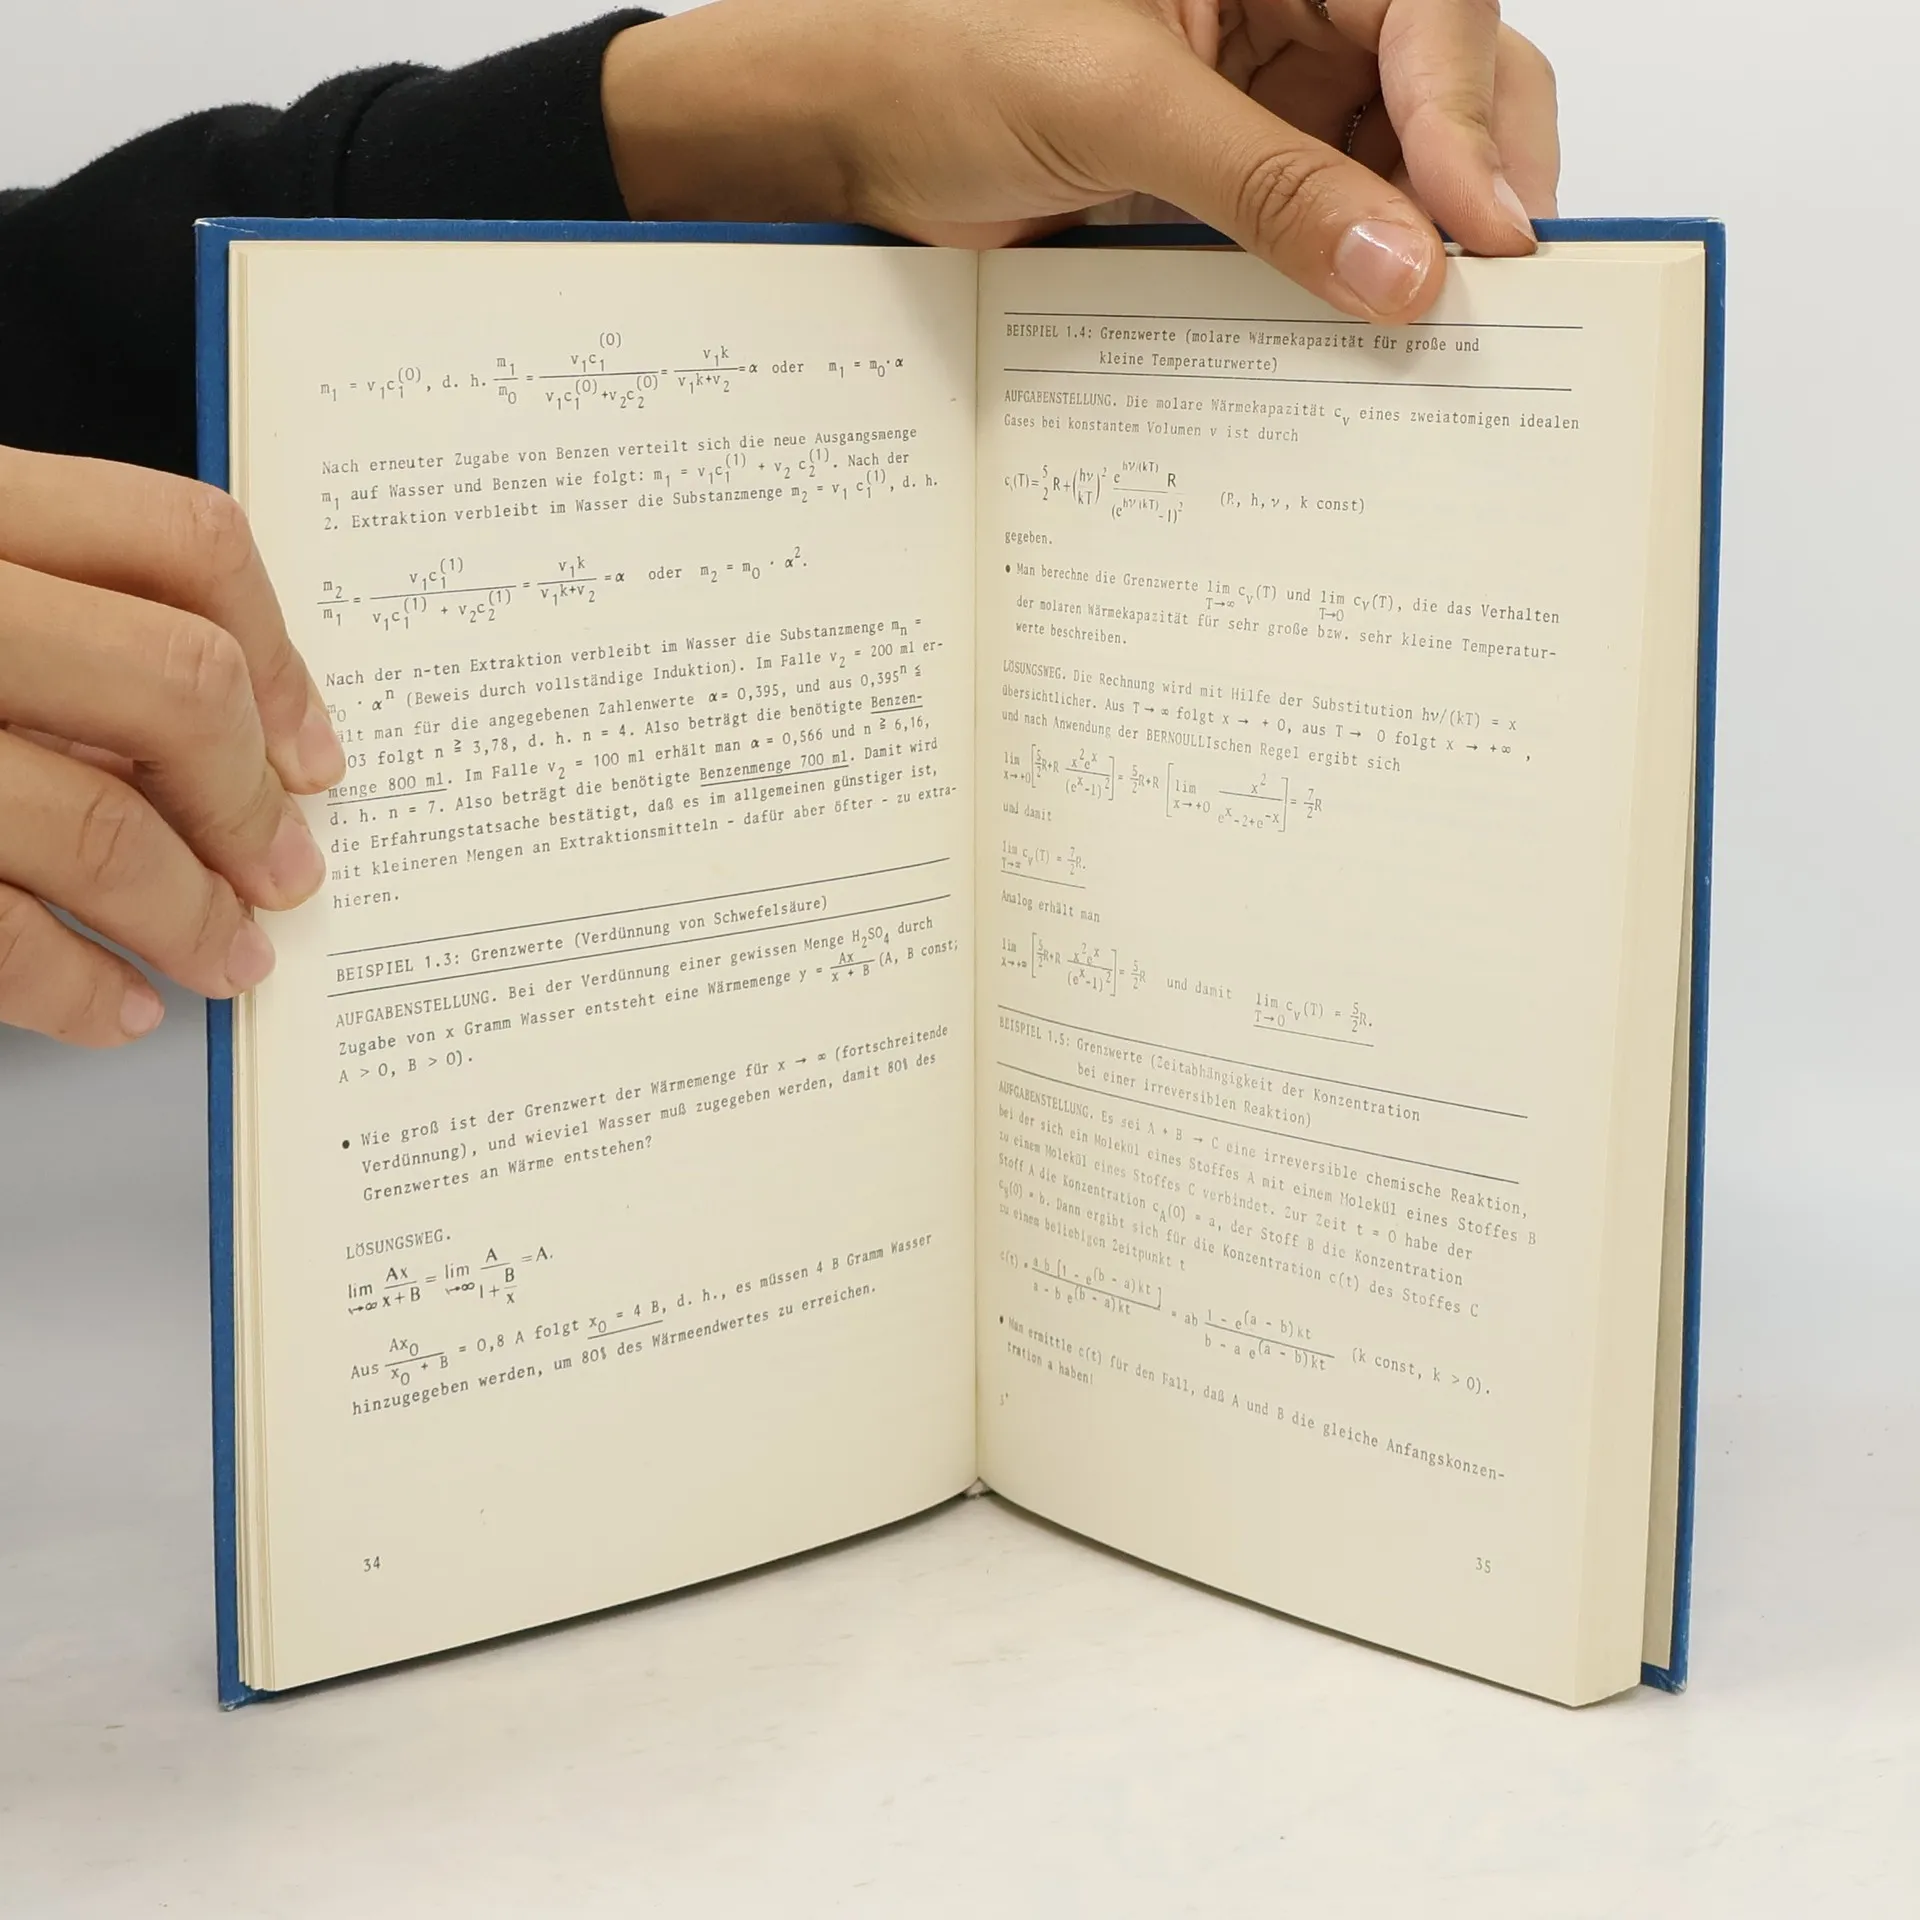 m₁ = v₁c₁⁽⁰⁾, d. h. m₁/m₀ = v₁c₁⁽⁰⁾/(v₁c₁⁽⁰⁾+v₂c₂⁽⁰⁾) = v₁k/(v₁k+v₂) = α oder m₁ = m₀·α
Nach erneuter Zugabe von Benzen verteilt sich die neue Ausgangsmenge
m₁ auf Wasser und Benzen wie folgt: m₁ = v₁c₁⁽¹⁾ + v₂ c₂⁽¹⁾. Nach der
2. Extraktion verbleibt im Wasser die Substanzmenge m₂ = v₁ c₁⁽¹⁾, d. h.
m₂/m₁ = v₁c₁⁽¹⁾/(v₁c₁⁽¹⁾ + v₂c₂⁽¹⁾) = v₁k/(v₁k+v₂) = α oder m₂ = m₀ · α².
Nach der n-ten Extraktion verbleibt im Wasser die Substanzmenge mₙ =
m₀ · αⁿ (Beweis durch vollständige Induktion). Im Falle v₂ = 200 ml er-
ält man für die angegebenen Zahlenwerte α = 0,395, und aus 0,395ⁿ ≦
03 folgt n ≧ 3,78, d. h. n = 4. Also beträgt die benötigte Benzen-
menge 800 ml. Im Falle v₂ = 100 ml erhält man α = 0,566 und n ≧ 6,16,
d. h. n = 7. Also beträgt die benötigte Benzenmenge 700 ml. Damit wird
die Erfahrungstatsache bestätigt, daß es im allgemeinen günstiger ist,
mit kleineren Mengen an Extraktionsmitteln - dafür aber öfter - zu extra-
hieren.
BEISPIEL 1.3: Grenzwerte (Verdünnung von Schwefelsäure)
AUFGABENSTELLUNG. Bei der Verdünnung einer gewissen Menge H₂SO₄ durch
Zugabe von x Gramm Wasser entsteht eine Wärmemenge y = Ax/(x + B) (A, B const;
A > 0, B > 0).
• Wie groß ist der Grenzwert der Wärmemenge für x → ∞ (fortschreitende
Verdünnung), und wieviel Wasser muß zugegeben werden, damit 80% des
Grenzwertes an Wärme entstehen?
LÖSUNGSWEG.
lim x→∞ Ax/(x+B) = lim x→∞ A/(1+B/x) = A.
Aus Ax₀/(x₀ + B) = 0,8 A folgt x₀ = 4 B, d. h., es müssen 4 B Gramm Wasser
hinzugegeben werden, um 80% des Wärmeendwertes zu erreichen.
34
BEISPIEL 1.4: Grenzwerte (molare Wärmekapazität für große und
kleine Temperaturwerte)
AUFGABENSTELLUNG. Die molare Wärmekapazität cᵥ eines zweiatomigen idealen
Gases bei konstantem Volumen v ist durch
cᵥ(T) = 5/2 R + (hν/kT)² e^(hν/(kT)) R/(e^(hν/(kT)) - 1)² (R, h, ν, k const)
gegeben.
• Man berechne die Grenzwerte lim T→∞ cᵥ(T) und lim T→0 cᵥ(T), die das Verhalten
der molaren Wärmekapazität für sehr große bzw. sehr kleine Temperatur-
werte beschreiben.
LÖSUNGSWEG. Die Rechnung wird mit Hilfe der Substitution hν/(kT) = x
übersichtlicher. Aus T → ∞ folgt x → + 0, aus T → 0 folgt x → +∞ ,
und nach Anwendung der BERNOULLIschen Regel ergibt sich
lim x→+0 [5/2 R+R x²eˣ/(eˣ-1)²] = 5/2 R+R [lim x→+0 x²/(eˣ-2+e⁻ˣ)] = 7/2 R
und damit
lim T→∞ cᵥ(T) = 7/2 R.
Analog erhält man
lim x→+∞ [5/2 R+R x²eˣ/(eˣ-1)²] = 5/2 R und damit lim T→0 cᵥ(T) = 5/2 R.
BEISPIEL 1.5: Grenzwerte (Zeitabhängigkeit der Konzentration
bei einer irreversiblen Reaktion)
AUFGABENSTELLUNG. Es sei A + B → C eine irreversible chemische Reaktion,
bei der sich ein Molekül eines Stoffes A mit einem Molekül eines Stoffes B
zu einem Molekül eines Stoffes C verbindet. Zur Zeit t = 0 habe der
Stoff A die Konzentration c_A(0) = a, der Stoff B die Konzentration
c_B(0) = b. Dann ergibt sich für die Konzentration c(t) des Stoffes C
zu einem beliebigen Zeitpunkt t
c(t) = a b [1 - e^((b - a)kt)]/(a - b e^((b - a)kt)) = ab (1 - e^((a - b)kt))/(b - a e^((a - b)kt)) (k const, k > 0).
• Man ermittle c(t) für den Fall, daß A und B die gleiche Anfangskonzen-
tration a haben!
3*
35